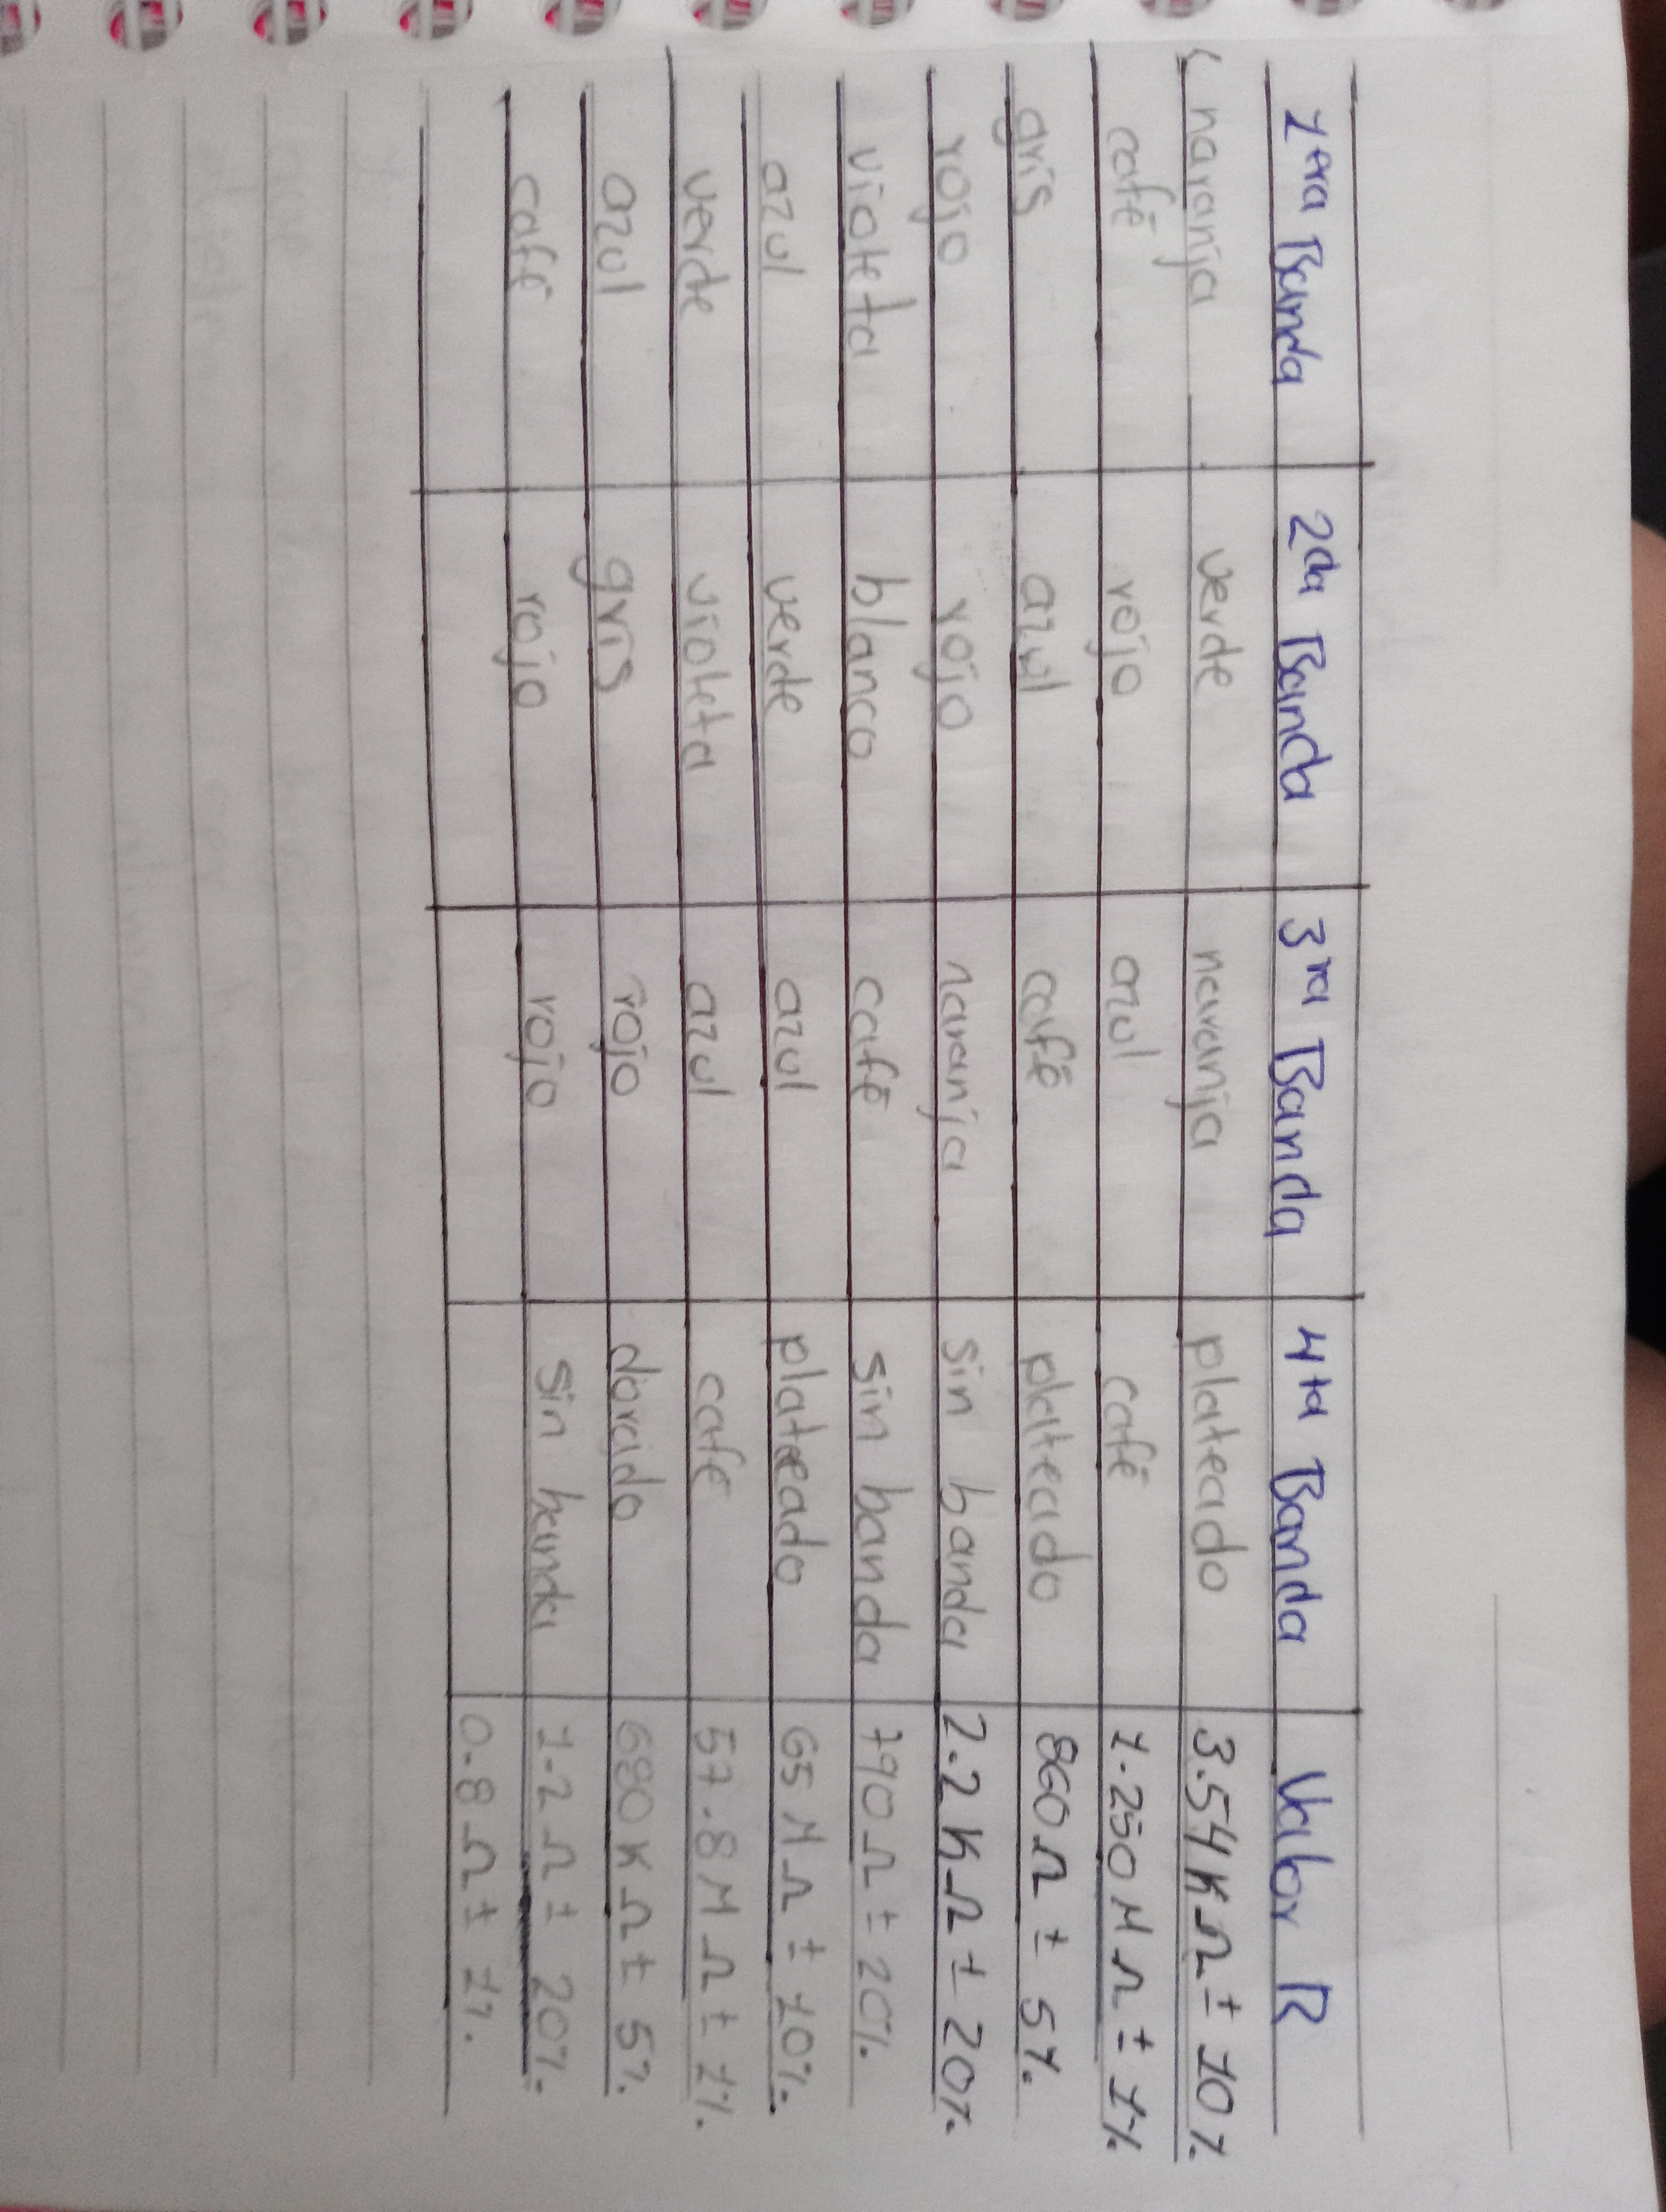 1era Banda 2da Banda 3ra Banda 4ta Banda Valor R
naranja verde naranja plateado 3.54KΩ ± 10%
café rojo azul café 1.250MΩ ± 1%
gris azul café plateado 860Ω ± 5%
rojo rojo naranja sin banda 2.2KΩ ± 20%
violeta blanco café sin banda 790Ω ± 20%
azul verde azul plateado 65MΩ ± 10%
verde violeta azul café 57.8MΩ ± 1%
azul gris rojo dorado 680KΩ ± 5%
café rojo rojo sin banda 1.2Ω ± 20%
0.8Ω ± 1%